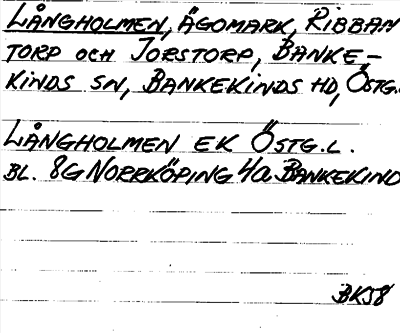 LÅNGHOLMEN, ÄGOMARK, RIBBAN
TORP OCH JORSTORP, BANKE-
KINDS SN, BANKEKINDS HD, ÖSTG.
LÅNGHOLMEN EK ÖSTG.L.
BL. 8G NORRKÖPING 4a BANKEKIND
BK58